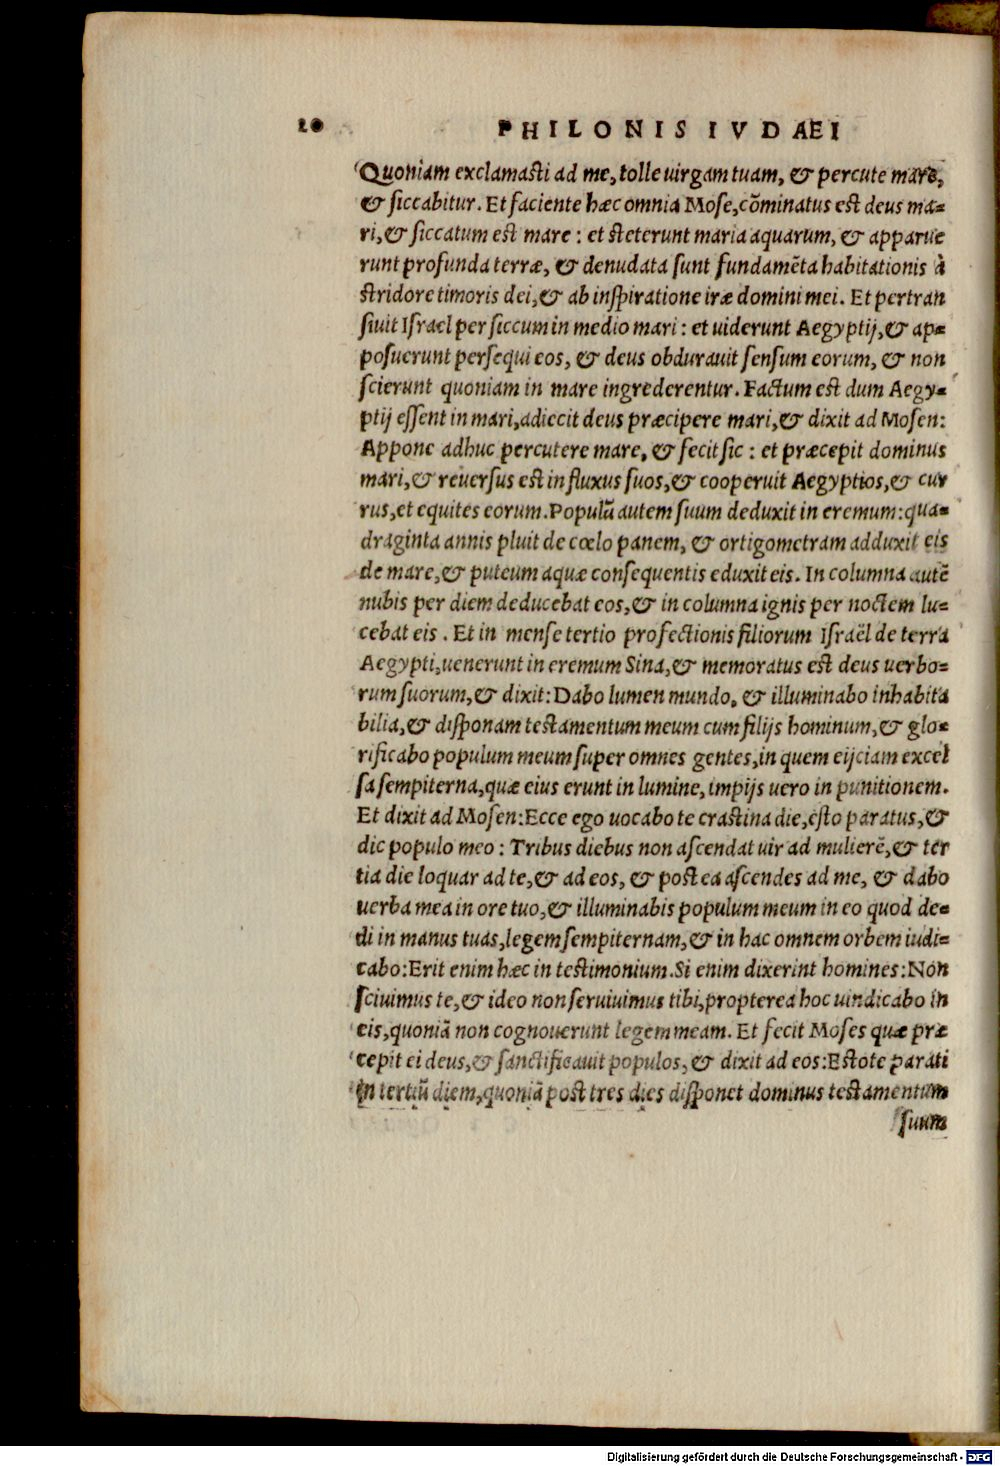 20
PHILONIS IVDAEI
Quoniam exclamasti ad me, tolle uirgam tuam, & percute mare,
& siccabitur. Et faciente hæc omnia Mose, cõminatus est deus ma=
ri, & siccatum est mare : et steterunt maria aquarum, & apparue
runt profunda terræ, & denudata sunt fundamẽta habitationis à
stridore timoris dei, & ab inspiratione iræ domini mei. Et pertran
siuit Israel per siccum in medio mari : et uiderunt Aegyptij, & ap=
posuerunt persequi eos, & deus obdurauit sensum eorum, & non
scierunt quoniam in mare ingrederentur. Factum est dum Aegy=
ptij essent in mari, adiecit deus præcipere mari, & dixit ad Mosen:
Appone adhuc percutere mare, & fecit sic : et præcepit dominus
mari, & reuersus est in fluxus suos, & cooperuit Aegyptios, & cur
rus, et equites eorum. Populũ autem suum deduxit in eremum: qua=
draginta annis pluit de cœlo panem, & ortigometram adduxit eis
de mare, & puteum aquæ consequentis eduxit eis. In columna autẽ
nubis per diem deducebat eos, & in columna ignis per noctem lu=
cebat eis. Et in mense tertio profectionis filiorum Israël de terra
Aegypti, uenerunt in eremum Sina, & memoratus est deus uerbo=
rum suorum, & dixit: Dabo lumen mundo, & illuminabo inhabita
bilia, & disponam testamentum meum cum filijs hominum, & glo=
rificabo populum meum super omnes gentes, in quem eijciam excel
sa sempiterna, quæ eius erunt in lumine, impijs uero in punitionem.
Et dixit ad Mosen: Ecce ego uocabo te crastina die, esto paratus, &
dic populo meo : Tribus diebus non ascendat uir ad mulierẽ, & ter
tia die loquar ad te, & ad eos, & post ea ascendes ad me, & dabo
uerba mea in ore tuo, & illuminabis populum meum in eo quod de=
di in manus tuas, legem sempiternam, & in hac omnem orbem iudi=
cabo: Erit enim hæc in testimonium. Si enim dixerint homines: Non
sciuimus te, & ideo non seruiuimus tibi, propterea hoc uindicabo in
eis, quoniã non cognouerunt legem meam. Et fecit Moses quæ præ
cepit ei deus, & sanctificauit populos, & dixit ad eos: Estote parati
in tertiũ diem, quoniã post tres dies disponet dominus testamentum
suum
Digitalisierung gefördert durch die Deutsche Forschungsgemeinschaft - DFG